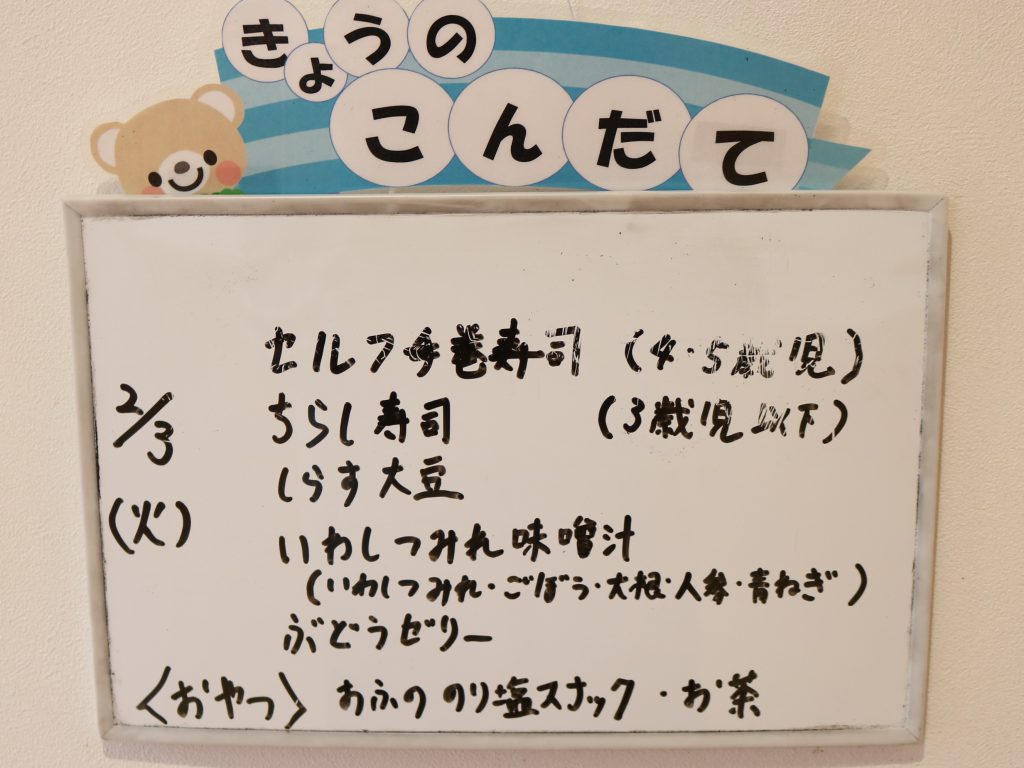 きょうの
こんだて
セルフ手巻寿司 (4・5歳児)
2/3 ちらし寿司 (3歳児以下)
しらす大豆
(火) いわしつみれ味噌汁
(いわしつみれ・ごぼう・大根・人参・青ねぎ)
ぶどうゼリー
〈おやつ〉 おふの のり塩スナック・お茶